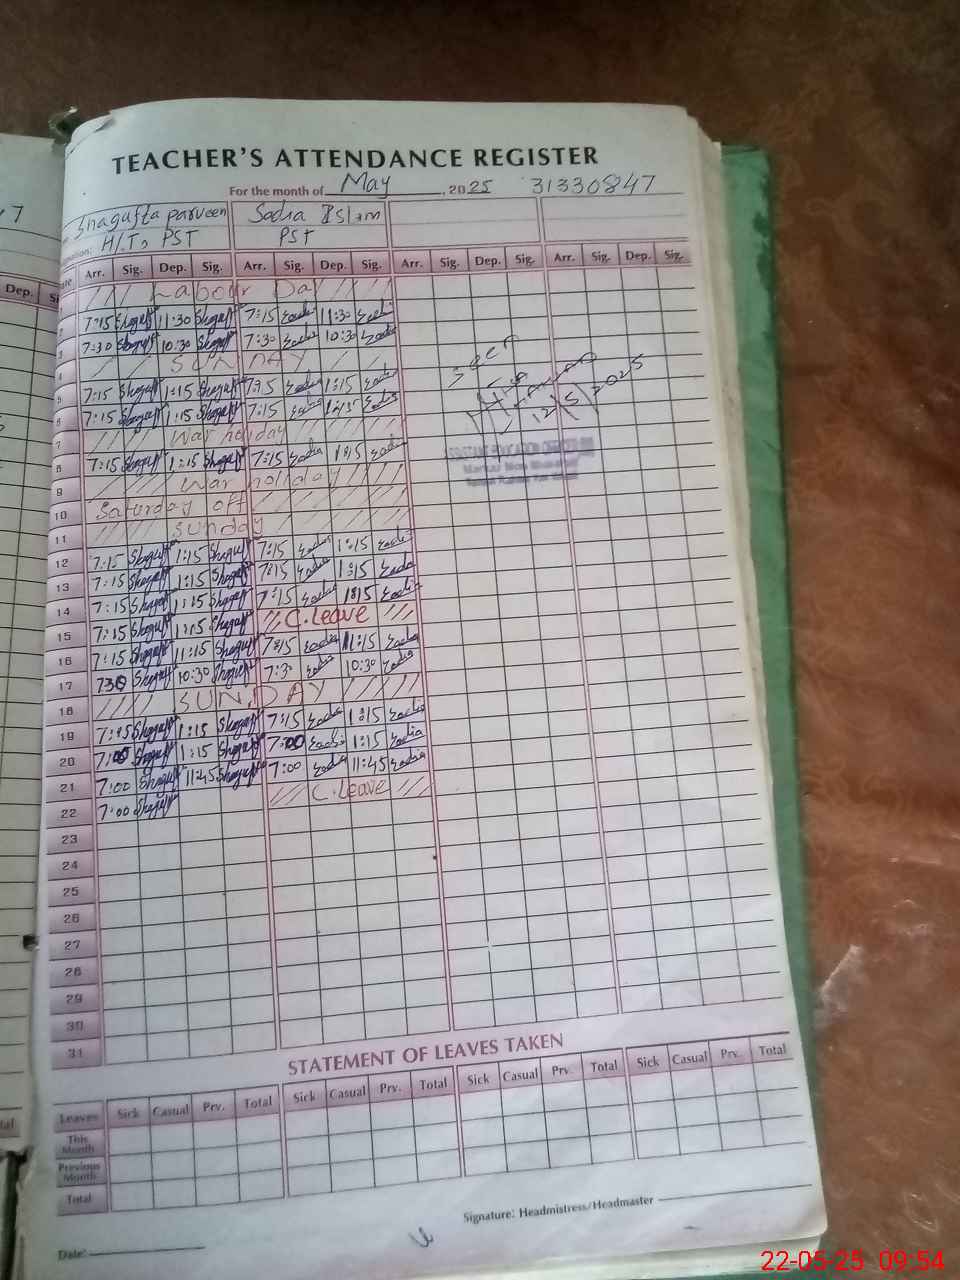 TEACHER'S ATTENDANCE REGISTER
For the month of May, 2025 31330847
Shagufta parveen Sadia Islam
H/T, PST PST
Arr. Sig. Dep. Sig. Arr. Sig. Dep. Sig. Arr. Sig. Dep. Sig. Arr. Sig. Dep. Sig.
Labour Day
7:15 Shaguft 11:30 Shaguft 7:15 Sadia 11:30 Sadia
3 7:30 Shaguft 10:30 Shaguft 7:30 Sadia 10:30 Sadia
4 SUNDAY
5 7:15 Shaguft 1:15 Shaguft 7:15 Sadia 1:15 Sadia
6 7:15 Shaguft 1:15 Shaguft 7:15 Sadia Sadia
7 War holiday
8 7:15 Shaguft 1:15 Shaguft 7:15 Sadia 1:15 Sadia
9 War holiday
10 Saturday off
11 Sunday
12 7:15 Shaguft 1:15 Shaguft 7:15 Sadia 1:15 Sadia
13 7:15 Shaguft 1:15 Shaguft 7:15 Sadia 1:15 Sadia
14 7:15 Shaguft 1:15 Shaguft 7:15 Sadia 1:15 Sadia
15 7:15 Shaguft 1:15 Shaguft C.Leave
16 7:15 Shaguft 11:15 Shaguft 7:15 Sadia 11:15 Sadia
17 730 Shaguft 10:30 Shaguft 7:30 Sadia 10:30 Sadia
18 SUNDAY
19 7:15 Shaguft 1:15 Shaguft 7:15 Sadia 1:15 Sadia
20 7:00 Shaguft 1:15 Shaguft 7:00 Sadia 1:15 Sadia
21 7:00 Shaguft 11:45 Shaguft 7:00 Sadia 11:45 Sadia
22 7:00 Shaguft C.Leave
23
24
25
26
27
28
29
30
31
Seen
12/5/2025
STATEMENT OF LEAVES TAKEN
Leaves Sick Casual Prv. Total Sick Casual Prv. Total Sick Casual Prv. Total Sick Casual Prv. Total
This Month
Previous Month
Total
Signature: Headmistress/Headmaster
Date:
Dep.
22-05-25 09:54